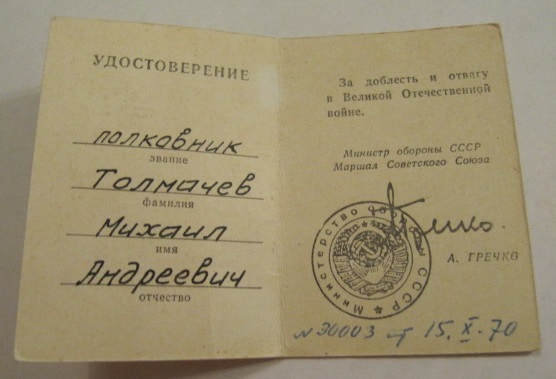 УДОСТОВЕРЕНИЕ
полковник
звание
Толмачев
фамилия
Михаил
имя
Андреевич
отчество
За доблесть и отвагу
в Великой Отечественной
войне.
Министр обороны СССР
Маршал Советского Союза
Министерство обороны СССР
Гречко.
А. ГРЕЧКО
N 30003 от 15. X-70